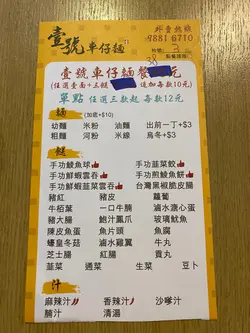 壹號車仔麵
外賣熱線
9881 6710
檯號: 3
點餐提示:
壹號車仔麵餐 38元
(任選壹面+三餸 追加每款10元)
單點 任選三款起 每款12元
麵 (加底+$10)
幼麵 米粉 油麵 出前一丁+$3
粗麵 河粉 米線 烏冬+$3
餸
手功鯪魚球 手功韭菜餃
手功鮮蝦雲吞 手功煎鯪魚餅
手功鮮蝦雲吞 台灣黑椒脆皮腸
豬紅 豬皮 蘿蔔
牛栢葉 一口牛腩 滷水溏心蛋
豬大腸 鮑汁鳳爪 玻璃魷魚
陳皮魚蛋 魚片頭 魚腐
蠔皇冬菇 滷水雞翼 牛丸
芝士腸 紅腸 貢丸
韭菜 通菜 生菜 豆卜
汁
麻辣汁 香辣汁 沙嗲汁
腩汁 清湯